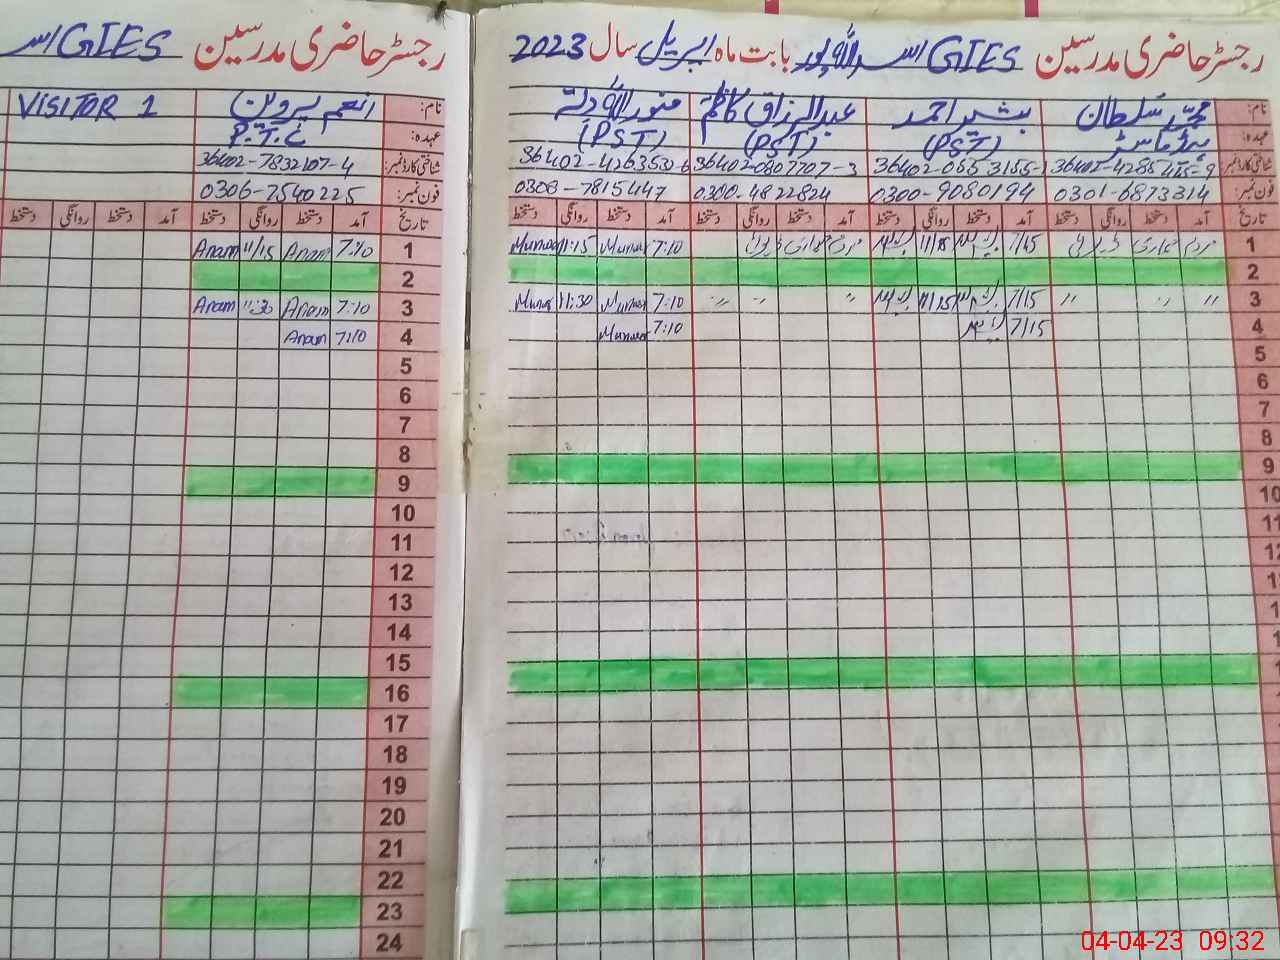 رجسٹر حاضری مدرسین GIES اسد اللہ پور بابت ماہ اپریل سال 2023
نام: محمد سلطان بشیر احمد عبدالرزاق کاظم منور اللہ دتہ
عہدہ: ہیڈ ماسٹر (PST) (PST) (PST)
شناختی کارڈ نمبر: 36402-0807707-3 36402-4263530-6
فون نمبر: 0301-6873314 0300-9080194 0300-4822824 0308-7815447
تاریخ آمد دستخط روانگی دستخط آمد دستخط روانگی دستخط آمد دستخط روانگی دستخط آمد دستخط روانگی دستخط
1 7/15 11/15 7:10 Munwar 11:15 Munwar
2
3 〃 〃 〃 7/15 11/15 〃 〃 〃 7:10 Munwar 11:30 Munwar
4 7/15 7:10 Munwar
5
6
7
8
9
10
11
12
رجسٹر حاضری مدرسین GIES اسد
نام: انعم پروین VISITOR 1
عہدہ: P.T.C
شناختی کارڈ نمبر: 36402-7832107-4
فون نمبر: 0306-7540225
تاریخ آمد دستخط روانگی دستخط آمد دستخط روانگی دستخط
1 7:10 Anam 11/15 Anam
2
3 7:10 Anam 11:30 Anam
4 7:10 Anam
5
6
7
8
9
10
11
12
13
14
15
16
17
18
19
20
21
22
23
24
04-04-23 09:32